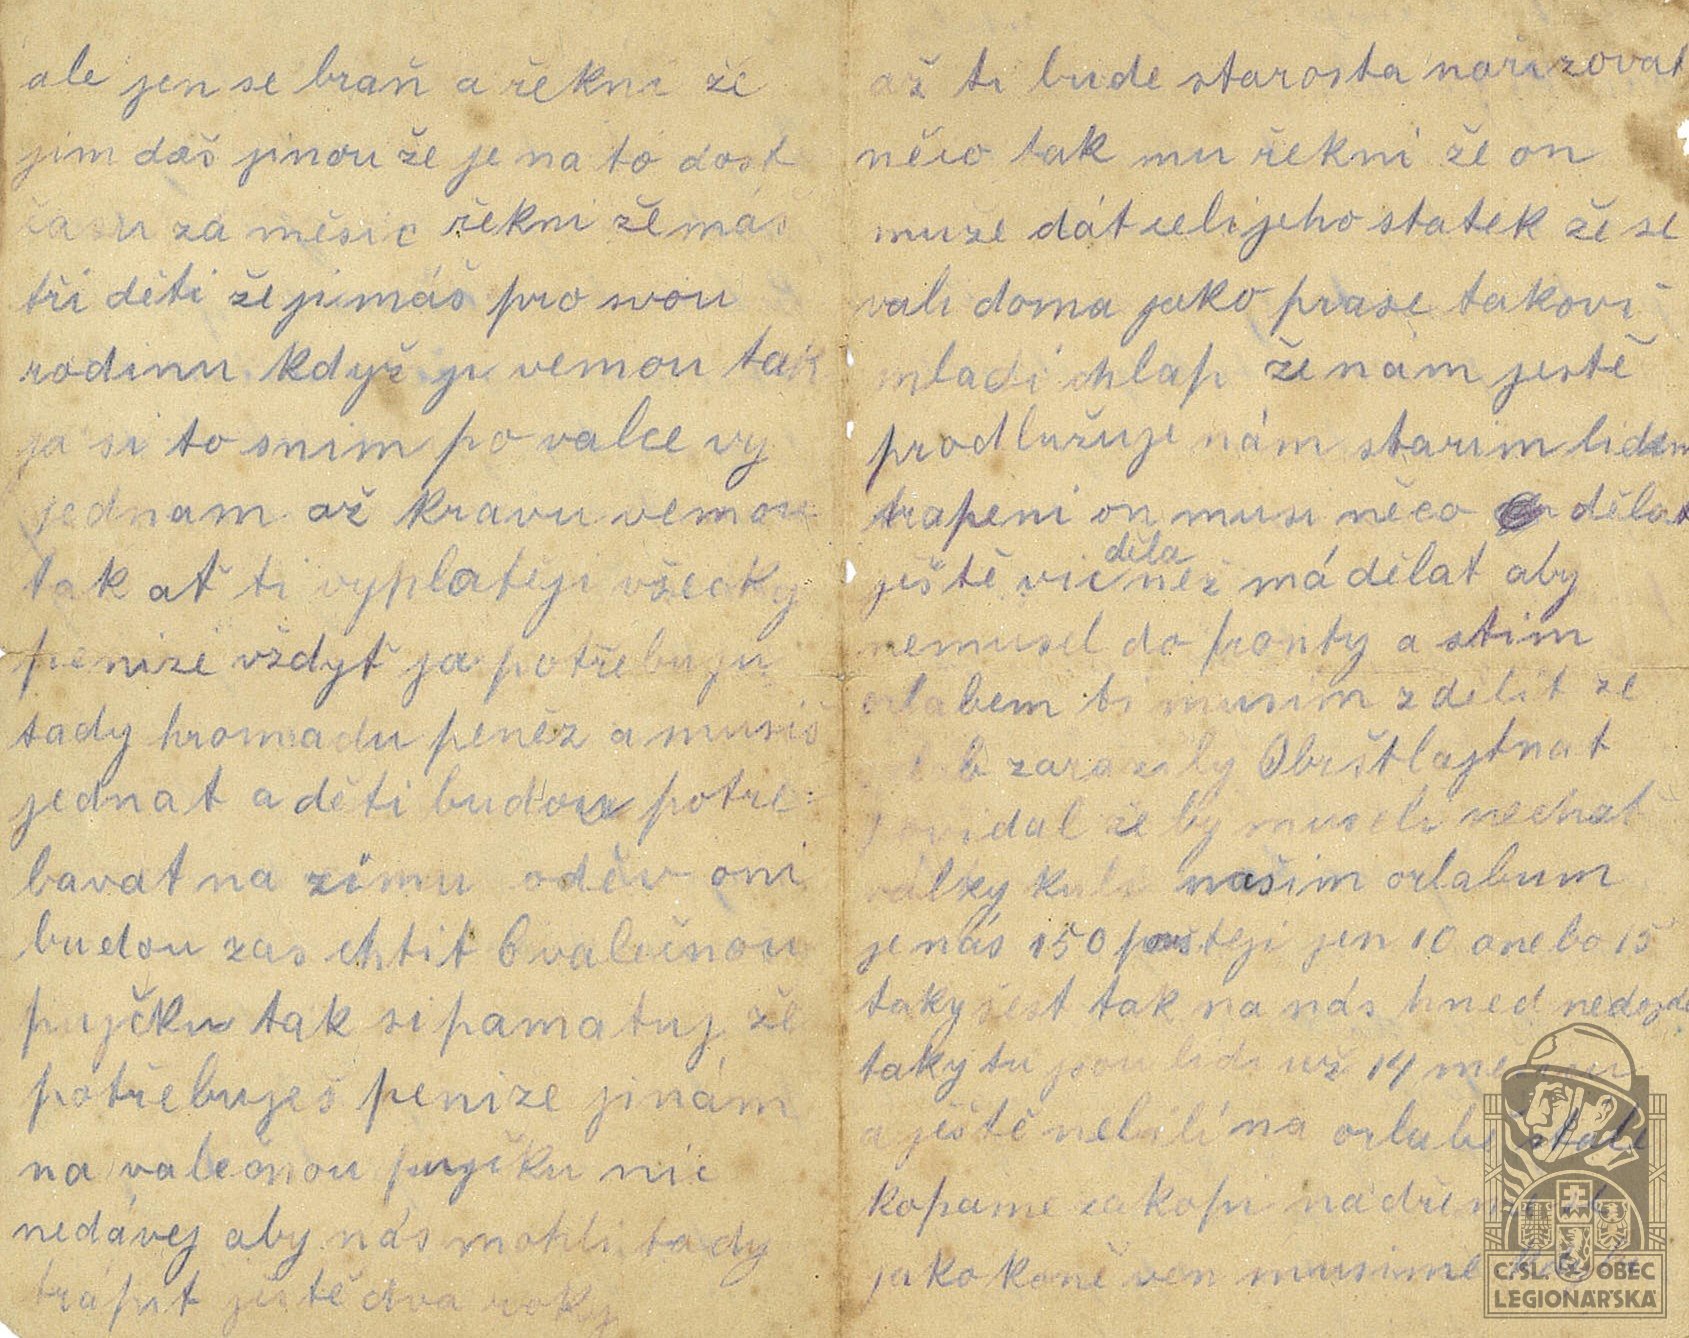 ale jen se braň a řekni že
jim daš jinou že je na to dost
času za měsic řekni že máš
tři děti že ji máš pro svou
rodinu když ji vemou tak
ja si to snim po valce vy
jednam až kravu vemou
tak ať ti vyplatěji všecky
penize vždyť ja potřebuju
tady hromadu peněz a musiš
jednat a děti budou potře-
bavat na zimu oděv oni
budou zas chtit 6 valečnou
pujčku tak si pamatuj že
potřebuješ penize jinám
na valečnou pujčku nic
nedávej aby nás mohli tady
trápit ještě dva roky
až ti bude starosta nařizovat
něco tak mu řekni že on
muže dát celi jeho statek že se
vali doma jako prase takovi
mladi chlap že nam jestě
prodlužuje nám starim lidem
trapeni on musi něco dělat
ještě vic děla něž má dělat aby
nemusel do fronty a stim
orlabem ti musim zdělit že
zarazily Obrštlajtnat
povidal že by museli nechat
války kuli našim orlabum
je nás 150 pousteji jen 10 anebo 15
taky šest tak na nás hned nedojde
taky tu jsou lidi už 14 měsicu
a ještě nebili na orlabě stale
kopame zakopi nadřem
jako koně ven musime
ČSL. OBEC
LEGIONÁŘSKÁ